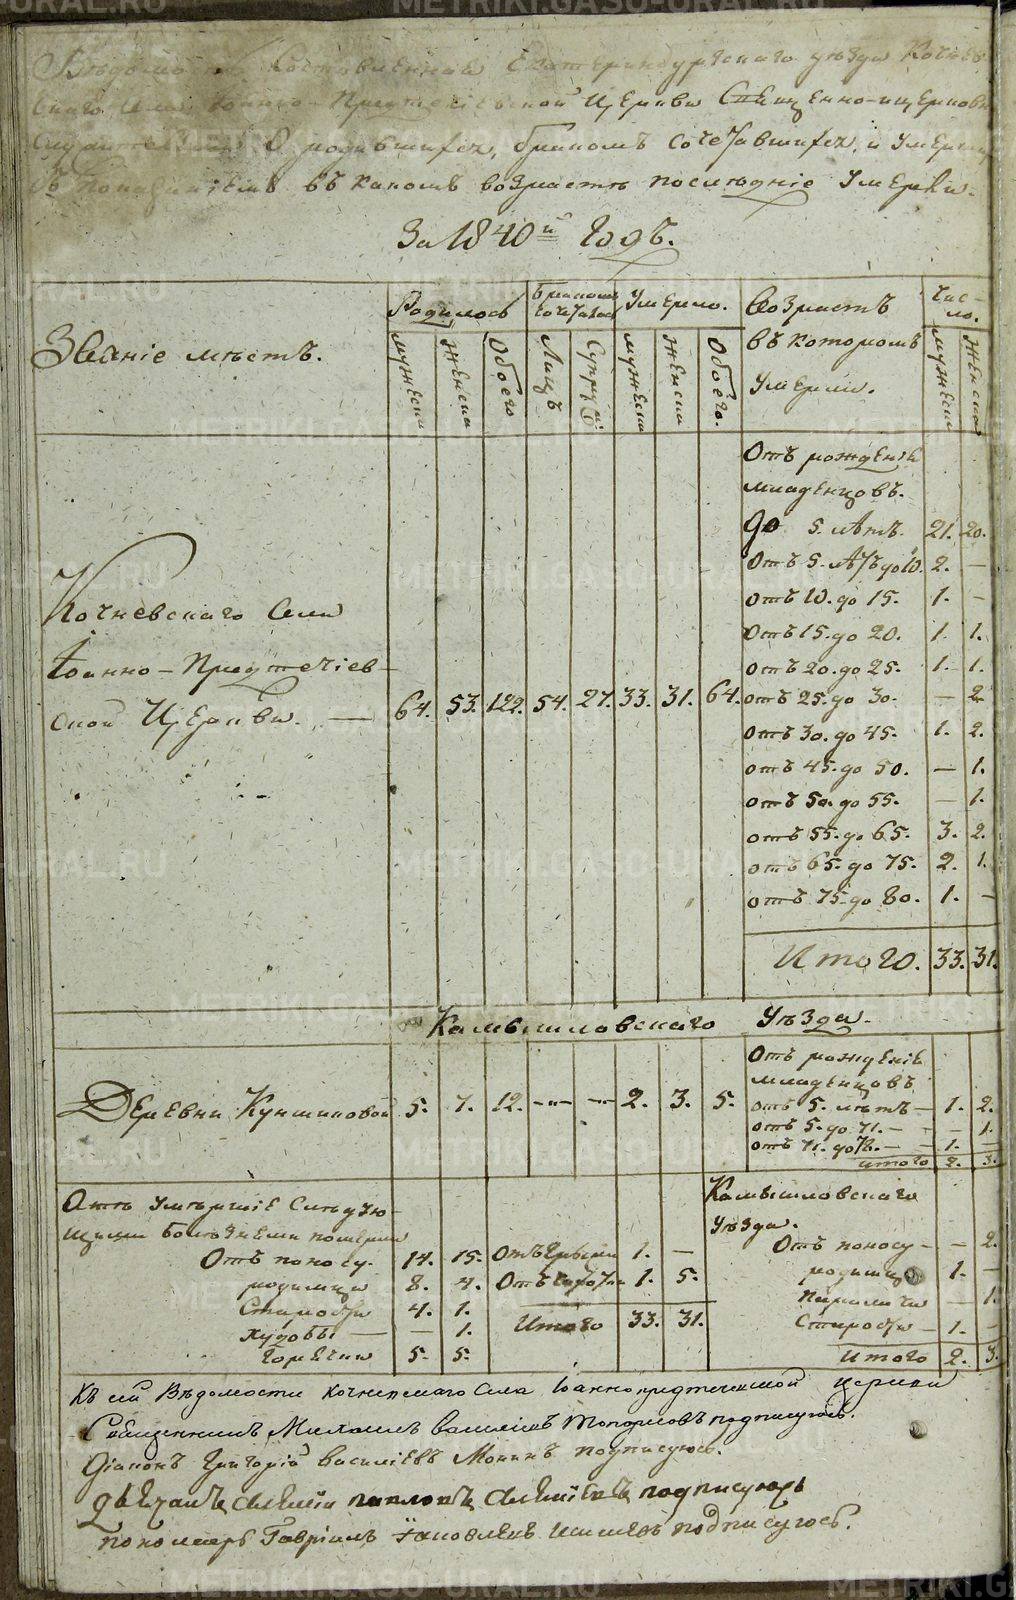 Вѣдомость Составленная Екатеринбургскаго уѣзда Кочнев-
скаго Села Іоанно-Предтечіевской Церкви Священно-церковно
служителями О родившихся, бракомъ Сочетавшихся, и Умершихъ
Съ Показаніемъ въ какомъ возрастѣ послѣдніе Умерли.
За 1840й Годъ.
Званіе мѣстъ.
Родилось
Бракомъ Сочеталось
Умерло.
Возрастъ
въ которомъ
Умерли.
Чис-
ло.
мужеска
женска
Обоего
Лицъ
Супруж.
мужеска
женска
Обоего.
мужеска
женска
Кочневскаго Села
Іоанно-Предтечіев-
ской Церкви. — 64. 53. 122. 54. 27. 33. 31. 64.
Отъ рожденія
младенцовъ.
до 5. лѣтъ. 21. 20.
Отъ 5. лѣтъ до 10. 2. —
отъ 10. до 15. 1. —
отъ 15. до 20. 1. 1.
отъ 20. до 25. 1. 1.
отъ 25. до 30. — 2.
отъ 30. до 45. 1. 2.
отъ 45. до 50. — 1.
отъ 50. до 55. — 1.
отъ 55. до 65. 3. 2.
отъ 65. до 75. 2. 1.
отъ 75. до 80. 1. —
Итого. 33. 31.
Камышловскаго Уѣзда.
Деревни Кунчиковой 5. 7. 12. — — 2. 3. 5.
Отъ рожденія
младенцовъ
отъ 5. лѣтъ — 1. 2.
отъ 5. до 71. — — 1.
отъ 71. до — — 1. —
итого 2. 3.
Умершіе Слѣдую-
щими болѣзнями померли
Отъ поносу. 14. 15.
родимца 8. 4.
Старости 4. 1.
худобы — — 1.
Горячки 5. 5.
Отъ 1. —
Отъ 1. 5.
Итого 33. 31.
Камышловскаго
Уѣзда.
Отъ поносу — — 2.
родимца 1. —
паралича — 1.
Старости — 1. —
итого 2. 3.
Къ сей Вѣдомости Кочневскаго Села Іоаннопредтечевской церкви
Священникъ Михаилъ Топорковъ подписуюсь.
Діаконъ Григорій Василіевъ подписуюсь.
Дьячекъ подписуюсь
пономарь Гавріилъ Яковлевъ подписуюсь.
METRIKI.GASO-URAL.RU